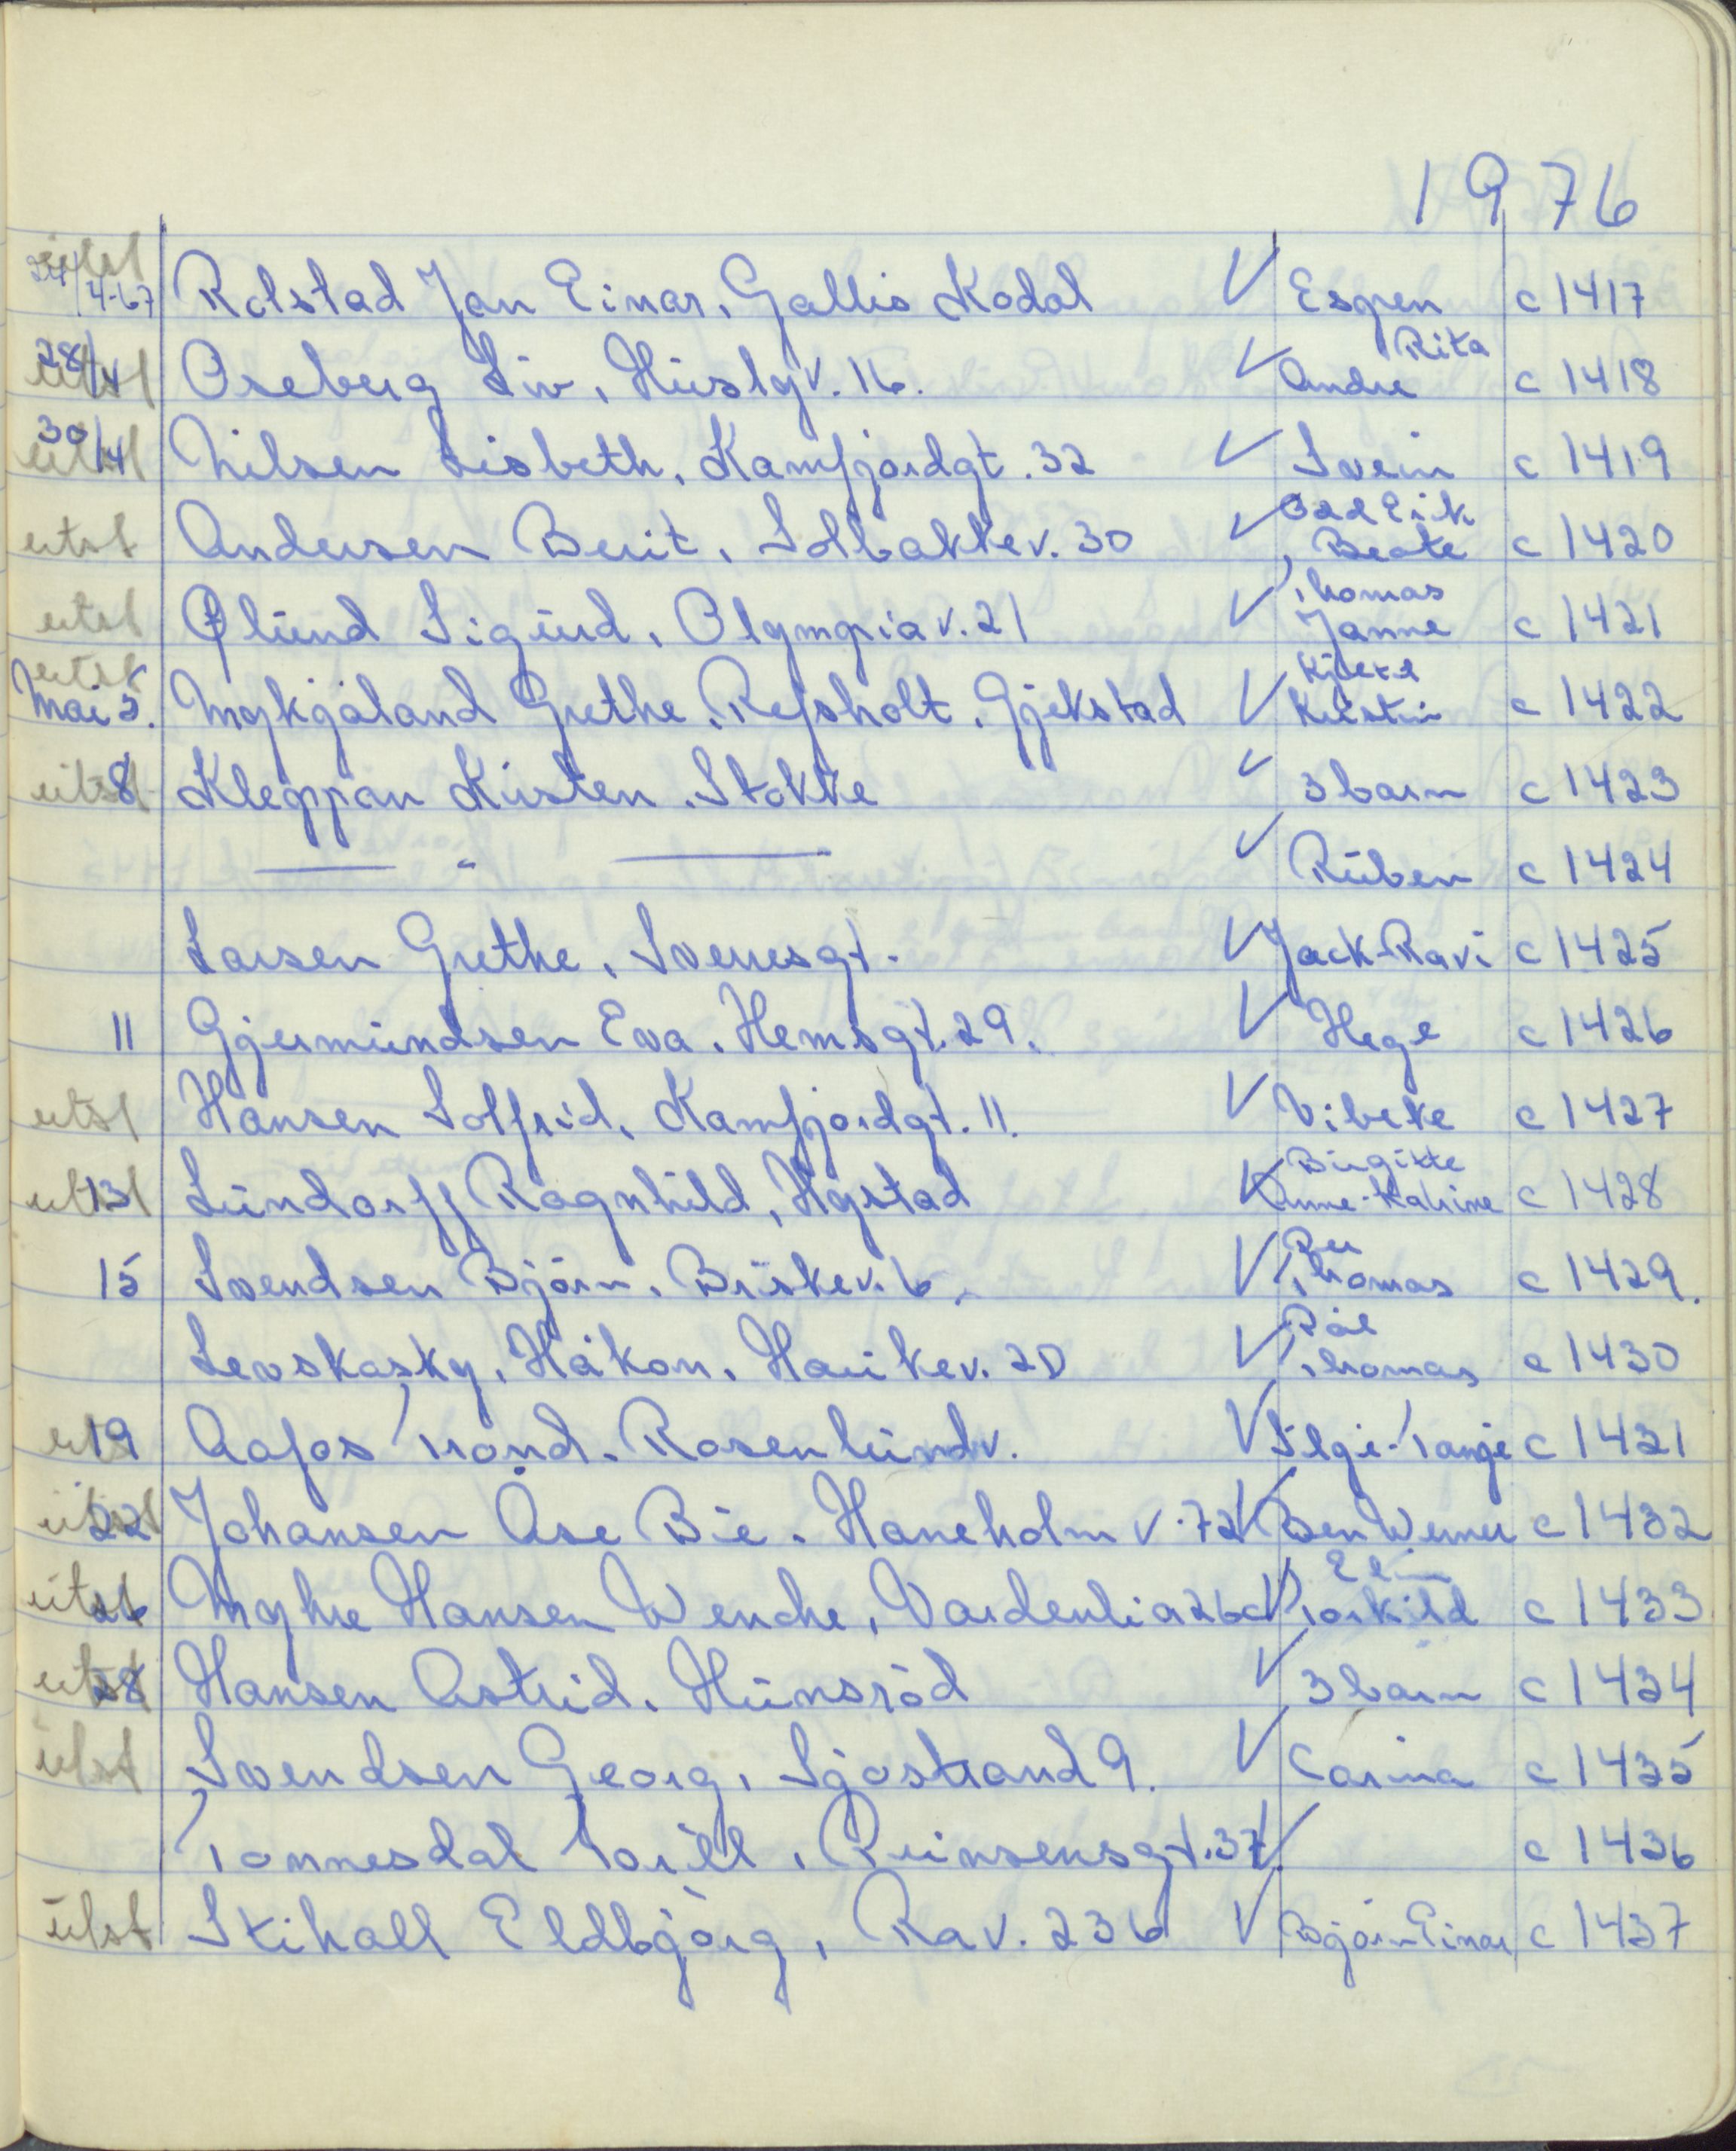 1976
utst
24/4-67 Rolstad Jan Einar, Gallis Kodal V Espen c 1417
Rita
28/4 utst Oseberg Liv, Huslyv. 16. V Andre c 1418
30/4 utst Nilsen Lisbeth, Kamfjordgt. 32 V Svein c 1419
Odd Eirik
utst Andersen Berit, Solbakkev. 30 V Beate c 1420
Thomas
utst Ølund Sigurd, Olympiav. 21 V Janne c 1421
utst Kjetil
Mai 5. Mykjåland Grethe, Refsholt, Gjekstad V Kristin c 1422
utst 8 Kleppan Kirsten, Stokke V 3 barn c 1423
— " — V Ruben c 1424
Larsen Grethe, Sverresgt. V Jack-Ravi c 1425
11 Gjermundsen Eva, Hemsgt. 29. V Hege c 1426
utst Hansen Solfrid, Kamfjordgt. 11. V Vibeke c 1427
Birgitte
utst 13 Lundorff Ragnhild, Hystad V Anne-Katrine c 1428
Per
15 Svendsen Bjørn, Briskev. 6. V Thomas c 1429.
Pål
Levskasky, Håkon, Haukev. 20 V Thomas c 1430
19 Aafos Trond, Rosenlundv. V c 1431
utst 22 Johansen Åse Bie, Haneholmv. 72 V Ben Werner c 1432
Elin
utst 26 Myhre Hansen Wenche, Vardenlia 26c V Torkild c 1433
utst 28 Hansen Astrid, Hunsrød V 3 barn c 1434
utst Svendsen Georg, Sjøstrand 9. V Carina c 1435
Tonnesdal Torill, Prinsensgt. 37. V c 1436
utst Stihall Eldbjørg, Rav. 236 V Bjørn Einar c 1437